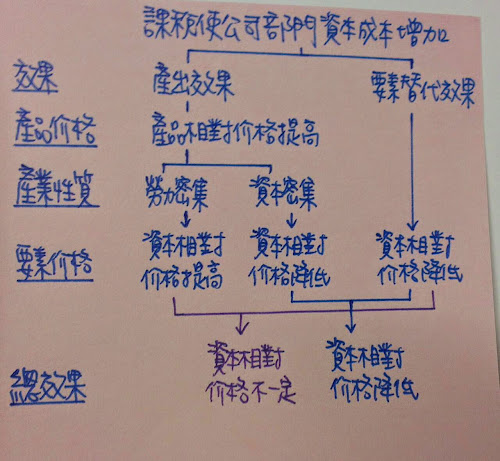 課稅使公司部門資本成本增加
效果 產出效果 要素替代效果
產品价格 產品相對价格提高
產業性質 勞力密集 資本密集
要素价格 資本相對 資本相對 資本相對
价格提高 价格降低 价格降低
總效果 資本相對 資本相對
价格不一定 价格降低